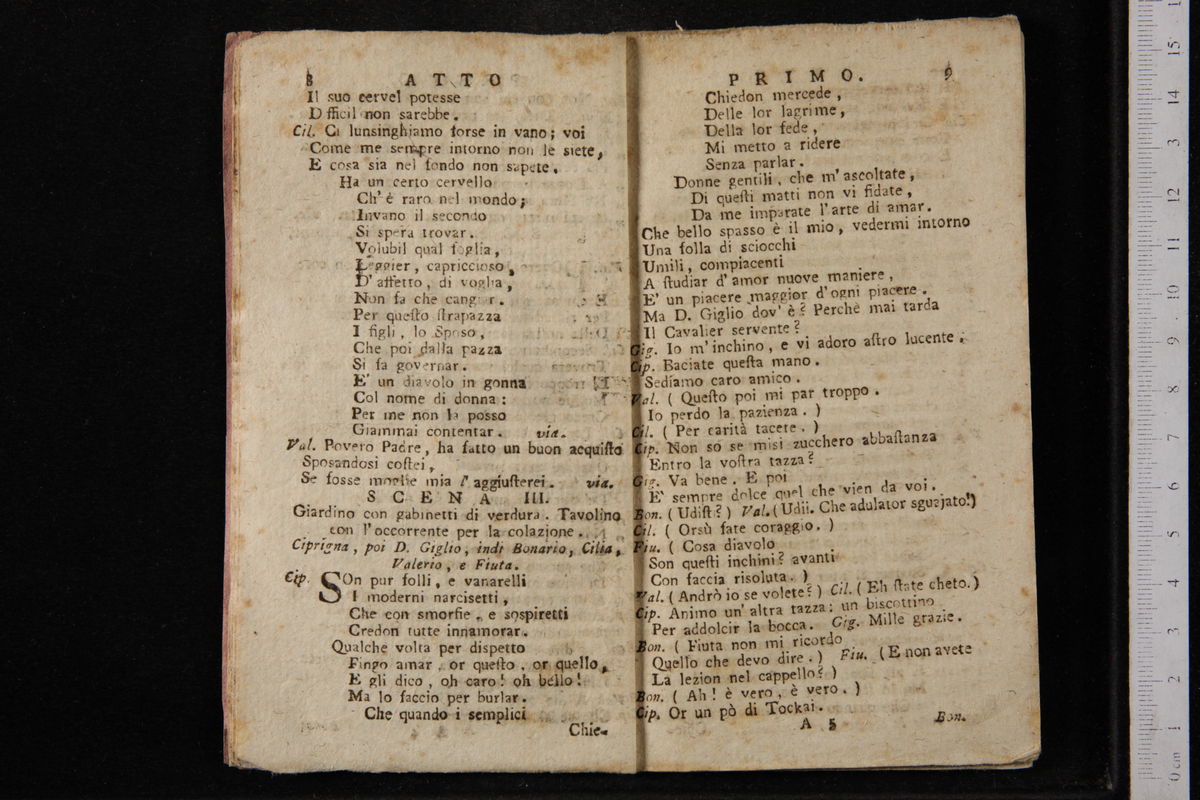 8 ATTO
Il suo cervel potesse
Difficil non sarebbe.
Cil. Ci lunsinghiamo forse in vano; voi
Come me sempre intorno non le siete,
E cosa sia nel fondo non sapete.
Ha un certo cervello
Ch' è raro nel mondo;
Invano il secondo
Si spera trovar.
Volubil qual foglia,
Leggier, capriccioso,
D' affetto, di voglia,
Non fa che cangiar.
Per questo strapazza
I figli, lo Sposo,
Che poi dalla pazza
Si fa governar.
E' un diavolo in gonna
Col nome di donna:
Per me non la posso
Giammai contentar. via.
Val. Povero Padre, ha fatto un buon acquisto
Sposandosi costei,
Se fosse moglie mia l' aggiusterei. via.
SCENA III.
Giardino con gabinetti di verdura. Tavolino
con l'occorrente per la colazione.
Ciprigna, poi D. Giglio, indi Bonario, Cilia,
Valerio, e Fiuta.
Cip. SOn pur folli, e vanarelli
I moderni narcisetti,
Che con smorfie, e sospiretti
Credon tutte innamorar.
Qualche volta per dispetto
Fingo amar, or questo, or quello,
E gli dico, oh caro! oh bello!
Ma lo faccio per burlar.
Che quando i semplici
Chie-
PRIMO. 9
Chiedon mercede,
Delle lor lagrime,
Della lor fede,
Mi metto a ridere
Senza parlar.
Donne gentili, che m' ascoltate,
Di questi matti non vi fidate,
Da me imparate l'arte di amar.
Che bello spasso è il mio, vedermi intorno
Una folla di sciocchi
Umili, compiacenti
A studiar d' amor nuove maniere,
E' un piacere maggior d'ogni piacere.
Ma D. Giglio dov' è? Perchè mai tarda
Il Cavalier servente?
Gig. Io m'inchino, e vi adoro astro lucente.
Cip. Baciate questa mano.
Sediamo caro amico.
Val. (Questo poi mi par troppo.
Io perdo la pazienza.)
Cil. (Per carità tacete.)
Cip. Non so se misi zucchero abbastanza
Entro la vostra tazza?
Gig. Va bene. E poi
E' sempre dolce quel che vien da voi.
Bon. (Udisti?) Val. (Udii. Che adulator sguajato!)
Cil. (Orsù fate coraggio.)
Fiu. (Cosa diavolo
Son questi inchini? avanti
Con faccia risoluta.)
Val. (Andrò io se volete?) Cil. (Eh state cheto.)
Cip. Animo un' altra tazza: un biscottino
Per addolcir la bocca. Gig. Mille grazie.
Bon. (Fiuta non mi ricordo
Quello che devo dire.) Fiu. (E non avete
La lezion nel cappello?)
Bon. (Ah! è vero, è vero.)
Cip. Or un pò di Tockai.
A 5 Bon.
0 cm 1 2 3 4 5 6 7 8 9 10 11 12 13 14 15